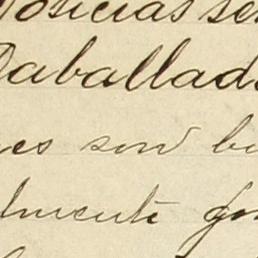 Noticias se
Caballada
es son bu
lmente go